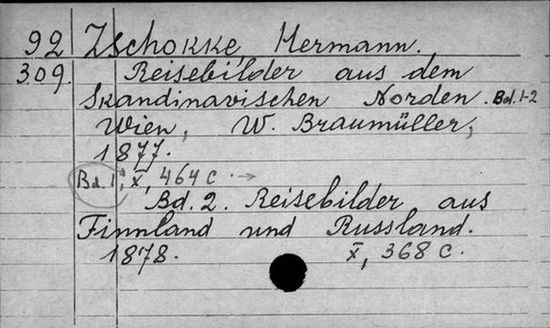 92 Zschokke Hermann.
309. Reisebilder aus dem
Skandinavischen Norden. Bd. 1-2
Wien, W. Braumüller,
1877.
Bd. 1, X, 464 c. →
Bd. 2. Reisebilder aus
Finnland und Russland.
1878. X, 368 c.